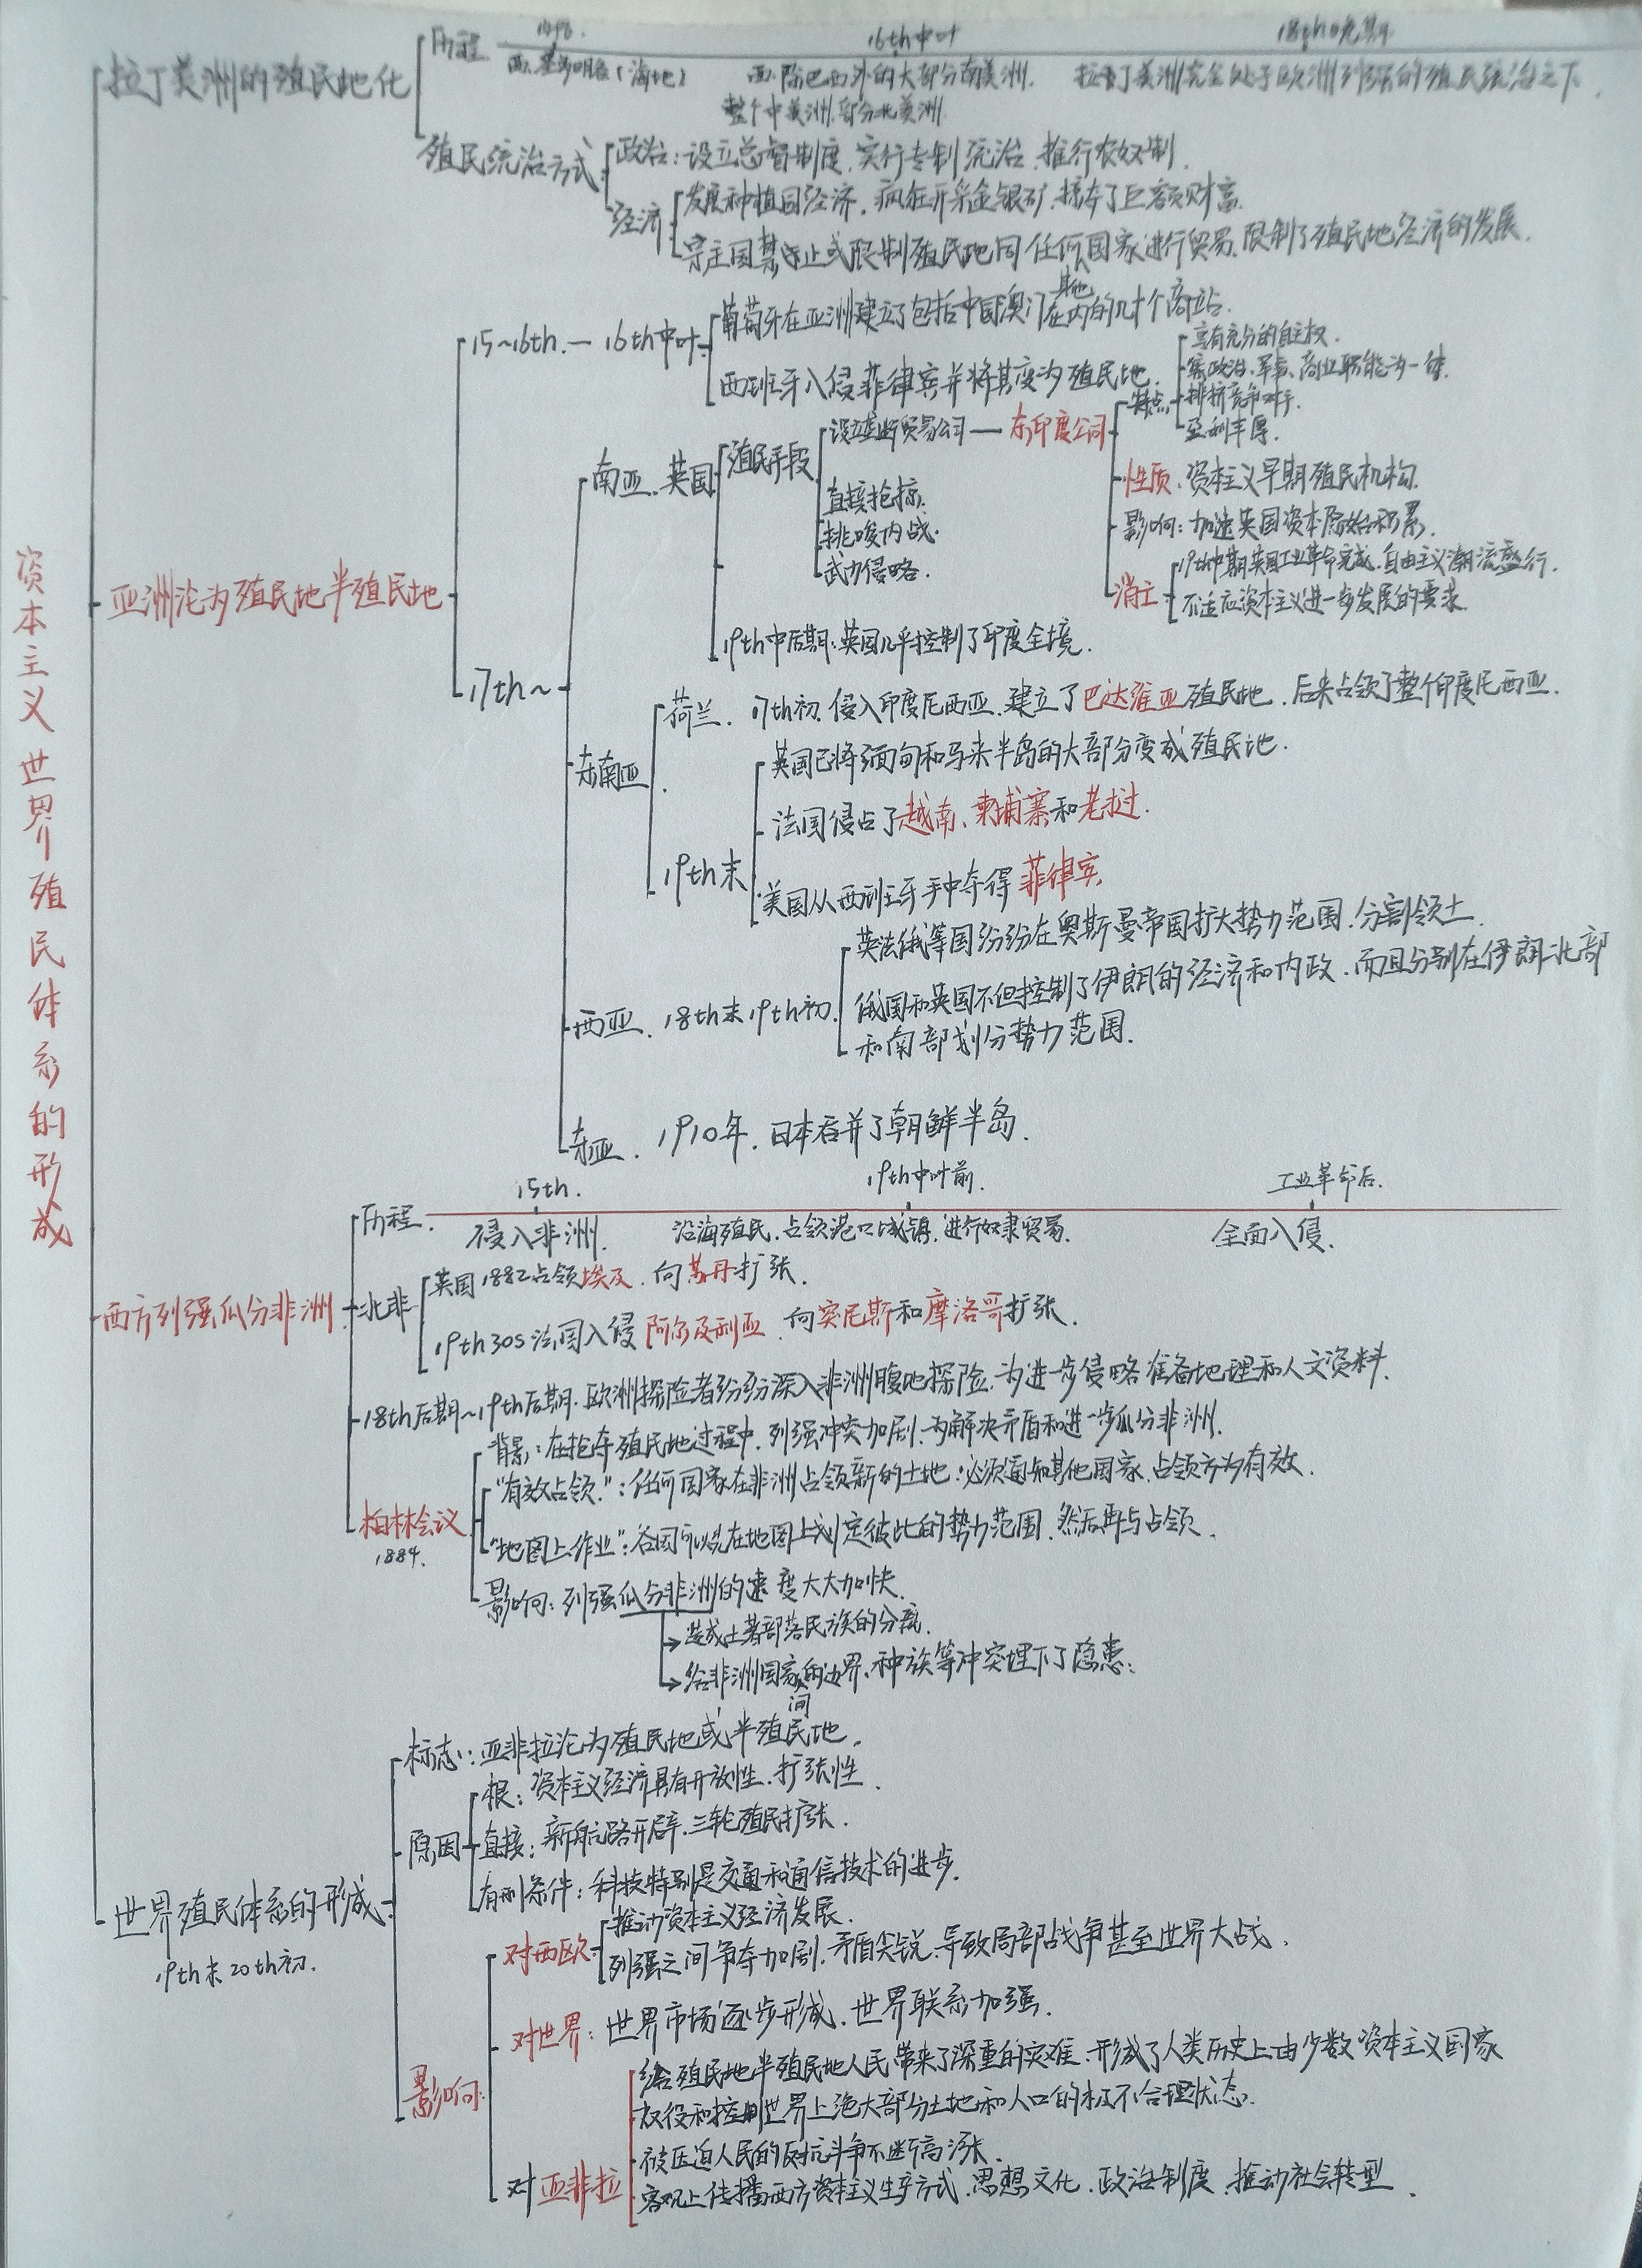 资本主义世界殖民体系的形成
拉丁美洲的殖民地化
历程
16th中叶
西.圣多明各(海地)
西.除巴西外的大部分南美洲.
整个中美洲.部分北美洲
拉丁美洲完全处于欧洲列强的殖民统治之下.
殖民统治方式
政治:设立总督制度.实行专制统治.推行农奴制.
经济
发展种植园经济.疯狂开采金银矿.掠夺了巨额财富.
宗主国禁止或限制殖民地同任何其他国家进行贸易.限制了殖民地经济的发展.
亚洲沦为殖民地半殖民地
15~16th.—16th中叶
葡萄牙在亚洲建立了包括中国澳门在内的几十个商站.
西班牙入侵菲律宾并将其变为殖民地.
17th~
南亚.英国
殖民手段
设立垄断贸易公司—东印度公司
特点
享有充分的自主权.
集政治、军事、商业职能为一体.
排挤竞争对手.
盈利丰厚.
性质.资本主义早期殖民机构.
影响:加速英国资本原始积累.
消亡
19th中期英国工业革命完成.自由主义潮流盛行.
不适应资本主义进一步发展的要求.
直接抢掠.
挑唆内战.
武力侵略.
19th中后期:英国几乎控制了印度全境.
东南亚
荷兰.17th初.侵入印度尼西亚.建立了巴达维亚殖民地.后来占领了整个印度尼西亚.
19th末
英国已将缅甸和马来半岛的大部分变成殖民地.
法国侵占了越南、柬埔寨和老挝.
美国从西班牙手中夺得菲律宾.
西亚.18th末19th初.
英法俄等国纷纷在奥斯曼帝国扩大势力范围.分割领土.
俄国和英国不但控制了伊朗的经济和内政.而且分别在伊朗北部
和南部划分势力范围.
东亚.1910年.日本吞并了朝鲜半岛.
西方列强瓜分非洲
历程.
15th.
侵入非洲.
19th中叶前.
沿海殖民.占领港口城镇.进行奴隶贸易.
工业革命后.
全面入侵.
北非
英国1882占领埃及.向苏丹扩张.
19th30s法国入侵阿尔及利亚.向突尼斯和摩洛哥扩张.
18th后期~19th后期.欧洲探险者纷纷深入非洲腹地探险.为进一步侵略准备地理和人文资料.
柏林会议
1884.
背景:在抢夺殖民地过程中.列强冲突加剧.为解决矛盾和进一步瓜分非洲.
“有效占领”:任何国家在非洲占领新的土地.必须通知其他国家.占领方为有效.
“地图上作业”:各国可以先在地图上划定彼此的势力范围.然后再与占领.
影响:列强瓜分非洲的速度大大加快.
→造成土著部落民族的分离.
→给非洲国家间的边界、种族等冲突埋下了隐患:
世界殖民体系的形成
19th末20th初.
标志:亚非拉沦为殖民地或半殖民地.
原因
根:资本主义经济具有开放性.扩张性.
直接:新航路开辟.三轮殖民扩张.
有利条件:科技特别是交通和通信技术的进步.
影响:
对西欧
推动资本主义经济发展.
列强之间争夺加剧.矛盾尖锐.导致局部战争甚至世界大战.
对世界:世界市场逐步形成.世界联系加强.
对亚非拉
给殖民地半殖民地人民带来了深重的灾难.形成了人类历史上由少数资本主义国家
奴役和控制世界上绝大部分土地和人口的极不合理状态.
被压迫人民的反抗斗争不断高涨.
客观上传播西方资本主义生产方式.思想文化.政治制度.推动社会转型.